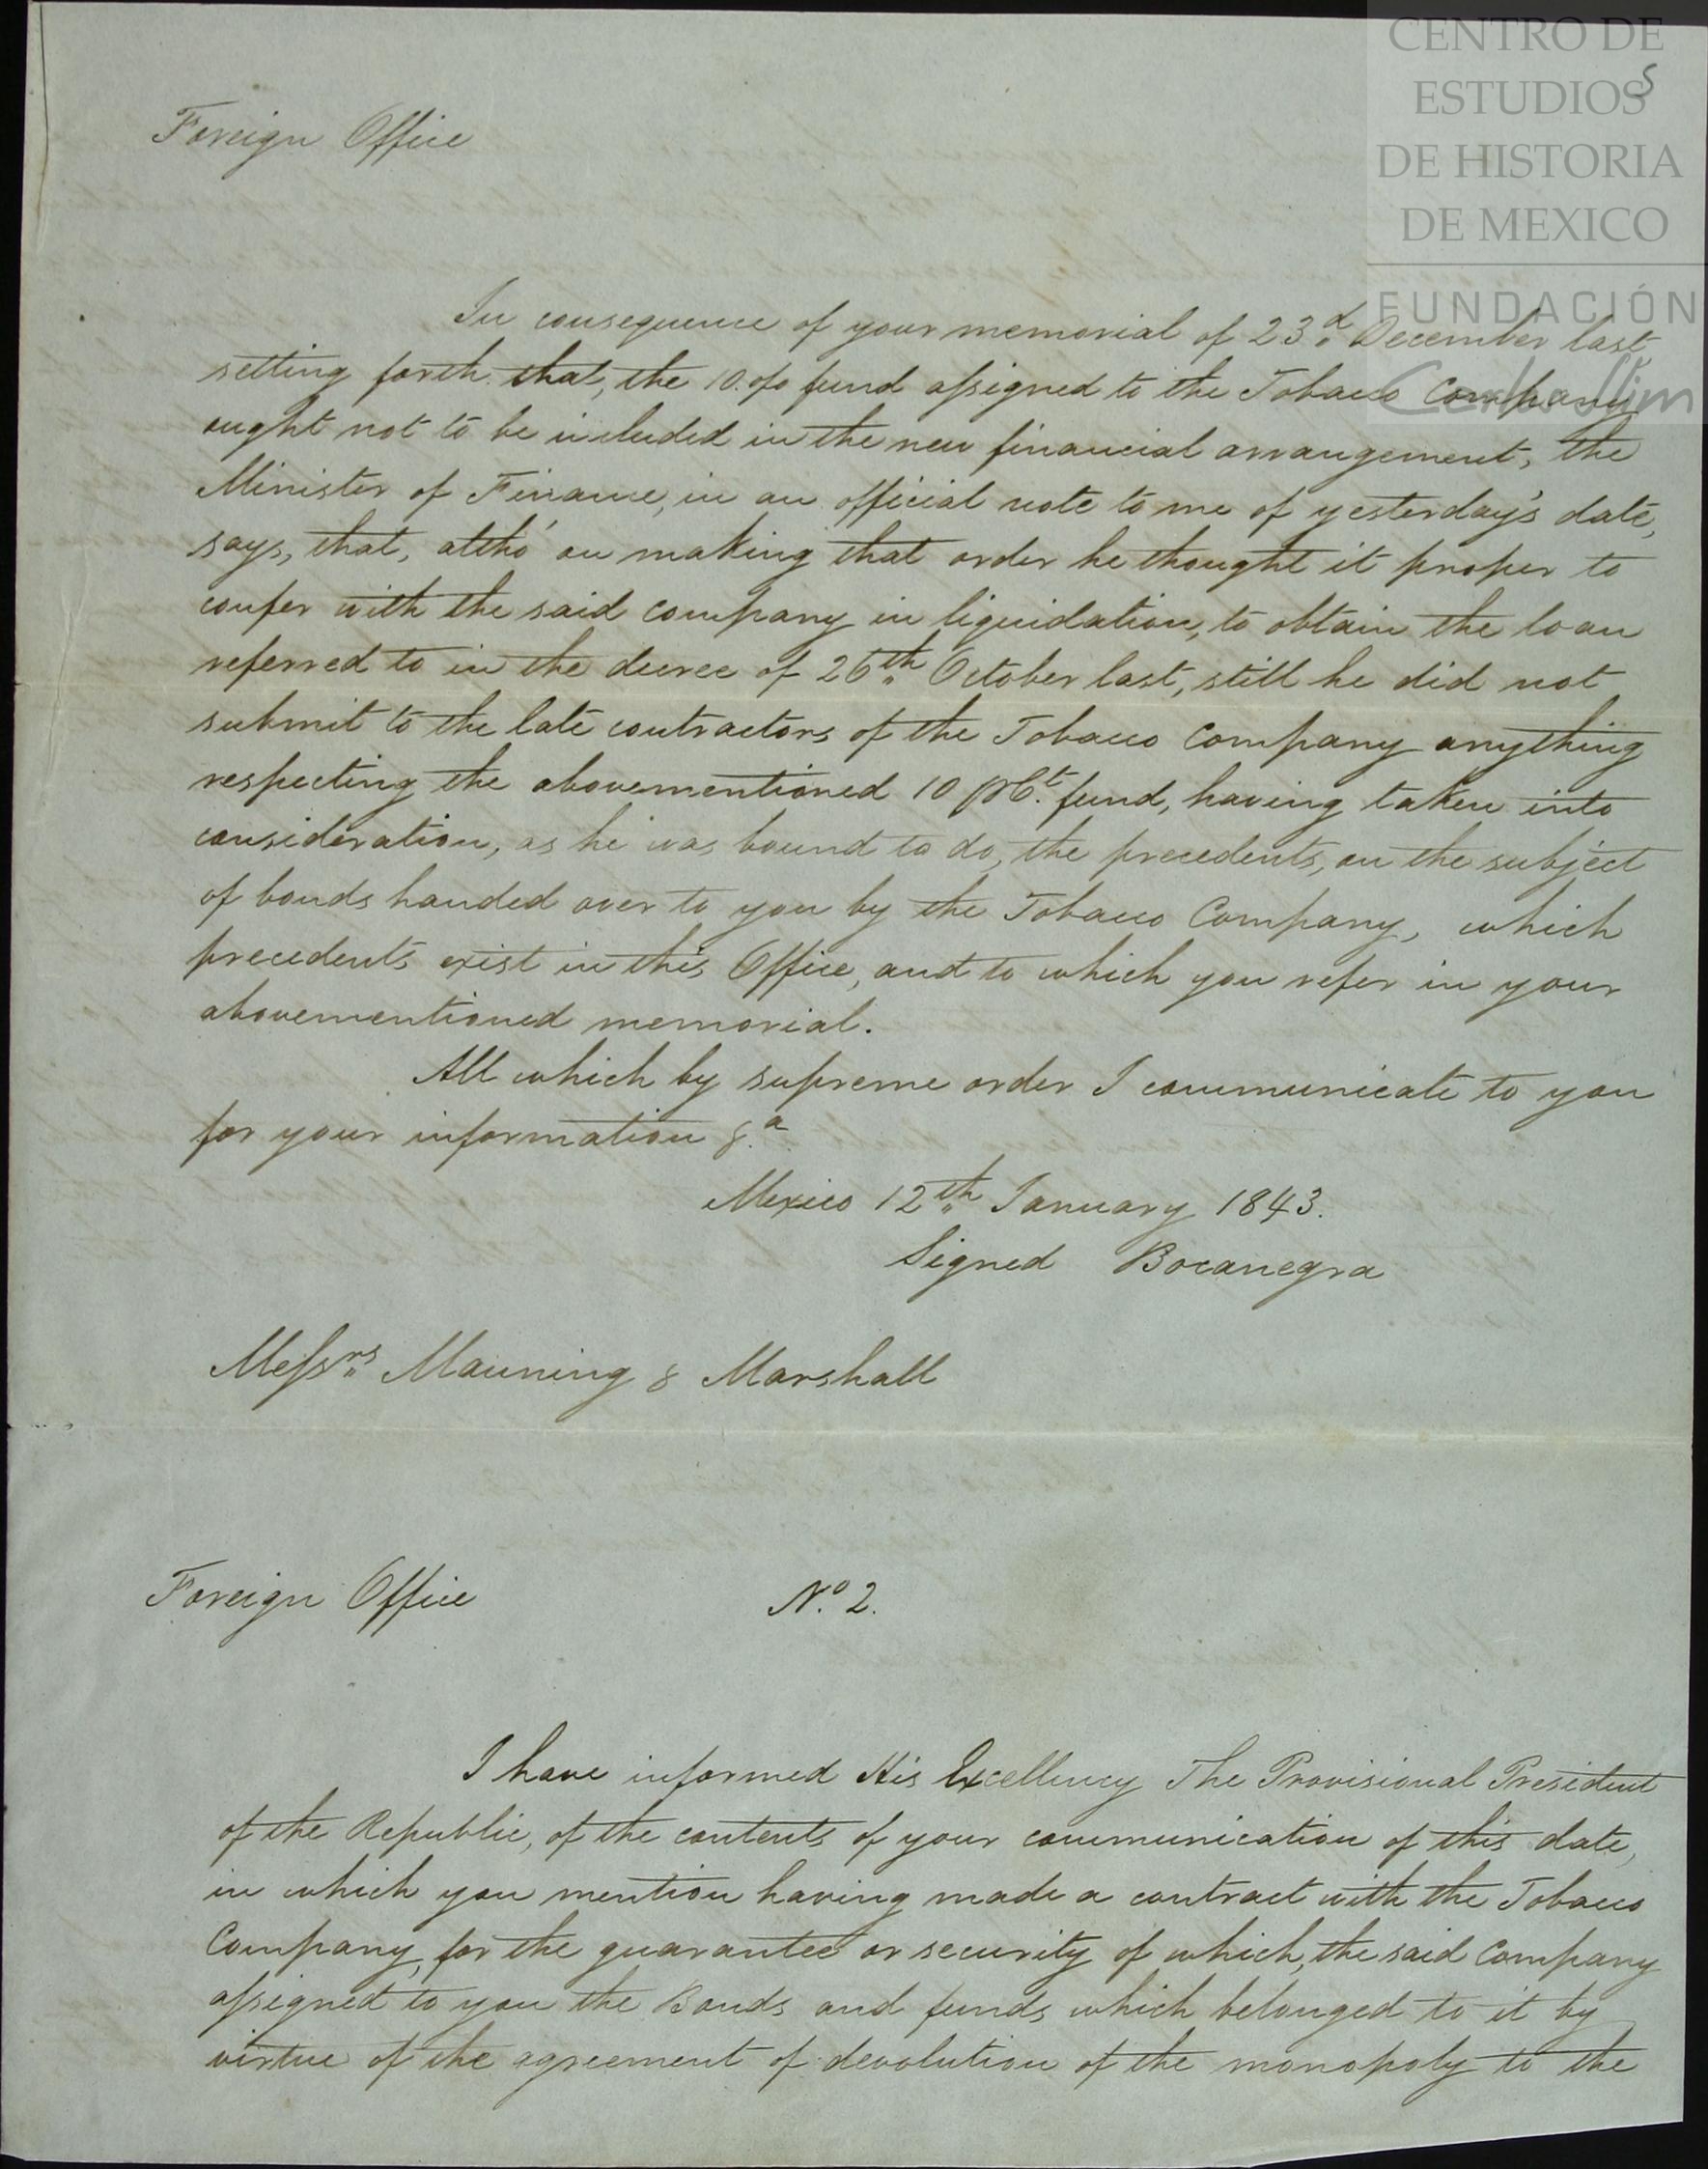 CENTRO DE
ESTUDIOS
5
DE HISTORIA
DE MEXICO
FUNDACIÓN
Carlos Slim
Foreign Office
In consequence of your memorial of 23.d December last
setting forth that, the 10.o/o fund assigned to the Tobacco Company
ought not to be included in the new financial arrangement, the
Minister of Finance, in an official note to me of yesterday's date,
says, that, altho' on making that order he thought it proper to
confer with the said company in liquidation, to obtain the loan
referred to in the decree of 26th October last, still he did not
submit to the late contractors of the Tobacco Company anything
respecting the abovementioned 10 prCt. fund, having taken into
consideration, as he was bound to do, the precedents, on the subject
of bonds handed over to you by the Tobacco Company, which
precedents exist in this Office, and to which you refer in your
abovementioned memorial.
All which by supreme order I communicate to you
for your information &.a
Mexico 12th January 1843.
Signed Bocanegra
Messrs Manning & Marshall
Foreign Office
No. 2.
I have informed His Excellency The Provisional President
of the Republic, of the contents of your communication of this date,
in which you mention having made a contract with the Tobacco
Company, for the guarantee or security of which, the said Company
assigned to you the Bonds and funds which belonged to it by
virtue of the agreement of devolution of the monopoly to the